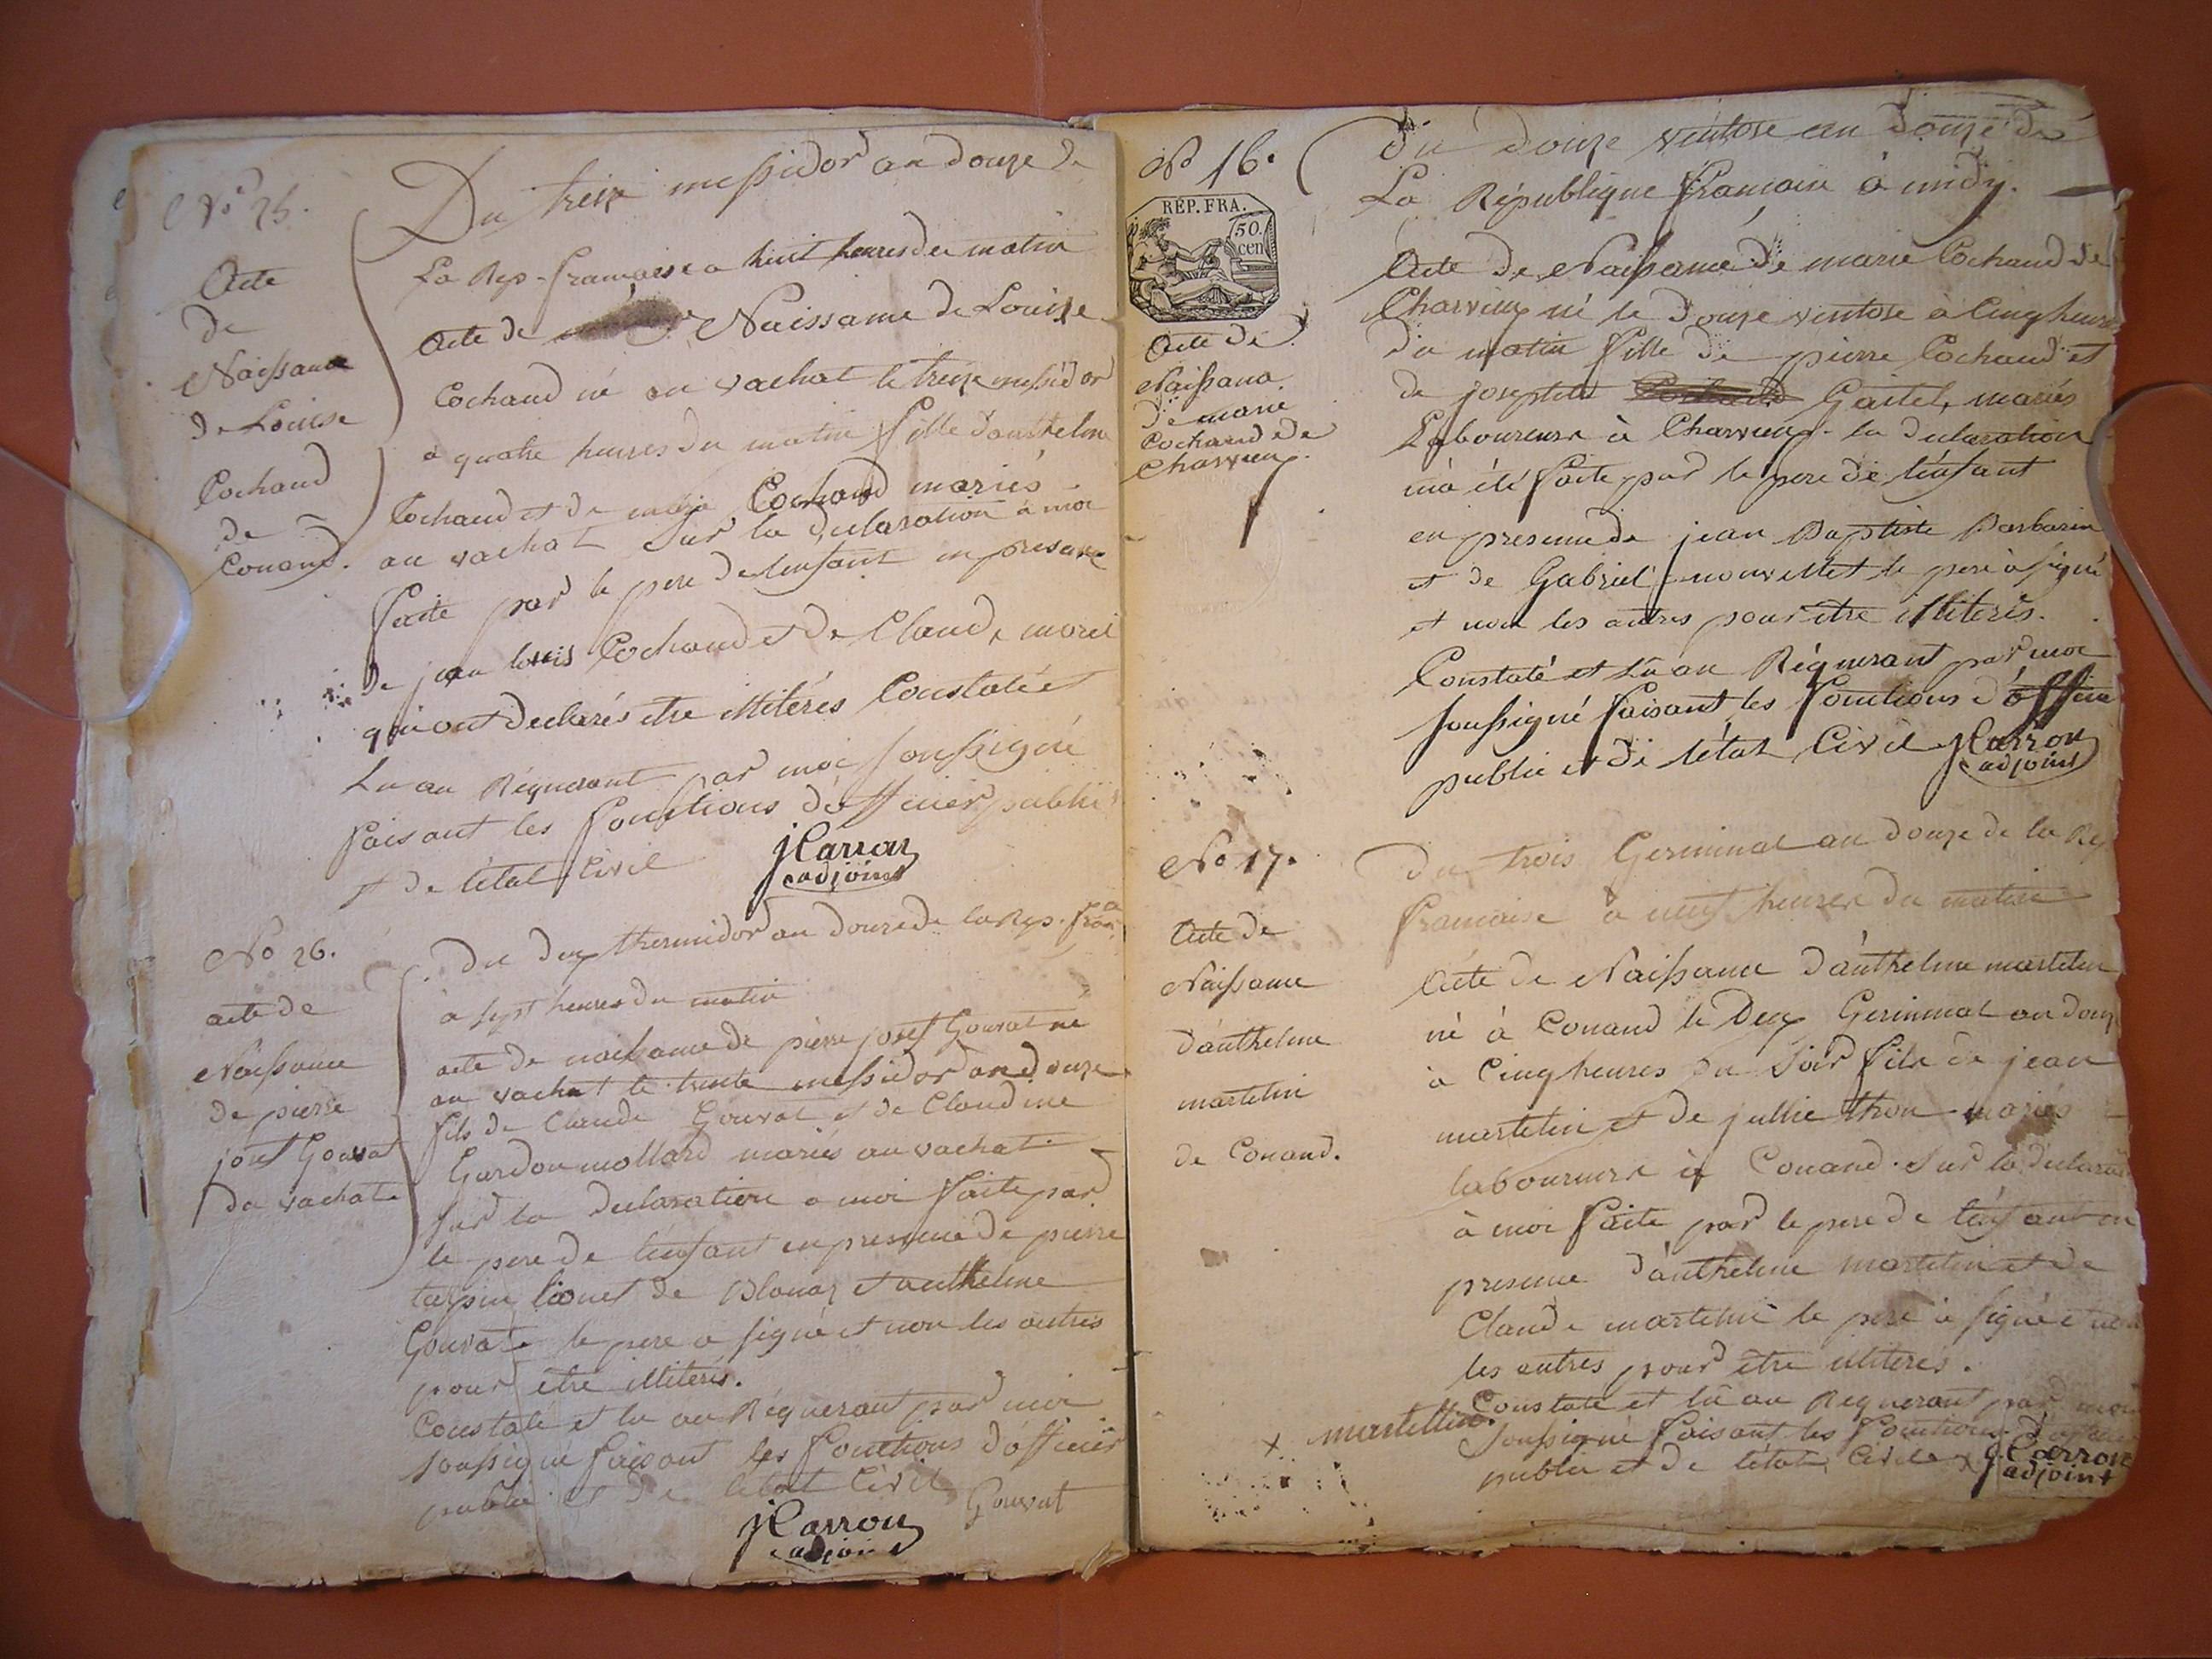 No 25.
Acte
de
Naissance
de Louise
Cochand
de
Conand.
Du treize messidor an douze de
La Rep. française a huit heures du matin
Acte de Naissance de Louise
Cochand né au vachat le treize messidor
à quatre heures du matin fille d'anthelme
Cochand et de Cochand mariés
au vachat Sur la declaration à moi
faite par le pere de lenfant en presence
de jean louis Cochand et de Claude morel
qui ont declarés être illiterés Constaté et
Lu au Réquerant par moi soussigné
faisant les fonctions d'officier public
et de létat Civil
JCarron
adjoint
No 26.
acte de
Naissance
de pierre
josef Gouvat
du vachat
Du deux thermidor an douze de la Rep. fran
à sept heures du matin
acte de naissance de pierre josef Gouvat né
au vachat le trente messidor an douze
fils de Claude Gouvat et de Claudine
Gardon mollard mariés au vachat
sur la declaration a moi faite par
le pere de lenfant en presence de pierre
de et anthelme
Gouvat le pere a signé et non les autres
pour être illiterés.
Constaté et lu au Réquerant par moi
soussigné faisant les fonctions d'officier
public et de létat Civil
Gouvat
JCarron
adjoint
No 16.
RÉP. FRA.
50.
cen
Acte de
Naissanc
de marie
Cochand de
Charvieux.
Du douze ventose an douze de
La République francaise à midy.
Acte de Naissance de marie Cochand de
Charvieux né le douze ventose à Cinq heures
du matin fille de pierre Cochand et
de Josephte Gaitel, mariés
Laboureurs à Charvieux. la declaration
m'a été faite par le pere de lénfant
en presence de jean Baptiste Barbarin
et de Gabriel le pere à signé
et non les autres pour être illiterés.
Constaté et Lu au Réquerant par moi
soussigné faisant les fonctions d'officier
public et de létat Civil JCarron
adjoint
No 17.
Acte de
Naissance
d'anthelme
martelin
de Conand.
Du trois Germinal an douze de la Rep
francaise à neuf heures du matin
Acte de Naissance d'anthelme martelin
né à Conand le Deux Germinal an douze
à Cinq heures du Soir fils de jean
martelin et de jullie thon mariés
laboureurs à Conand. Sur la declaration
à moi faite par le pere de lénfant en
presence d'anthelme martelin et de
Claude martelin le pere à signé et non
les autres pour être illiterés.
Constaté et lû au Réquerant par moi
soussigné faisant les fonctions d'officier
public et de létat Civil x JCarron
adjoint
x martellin.